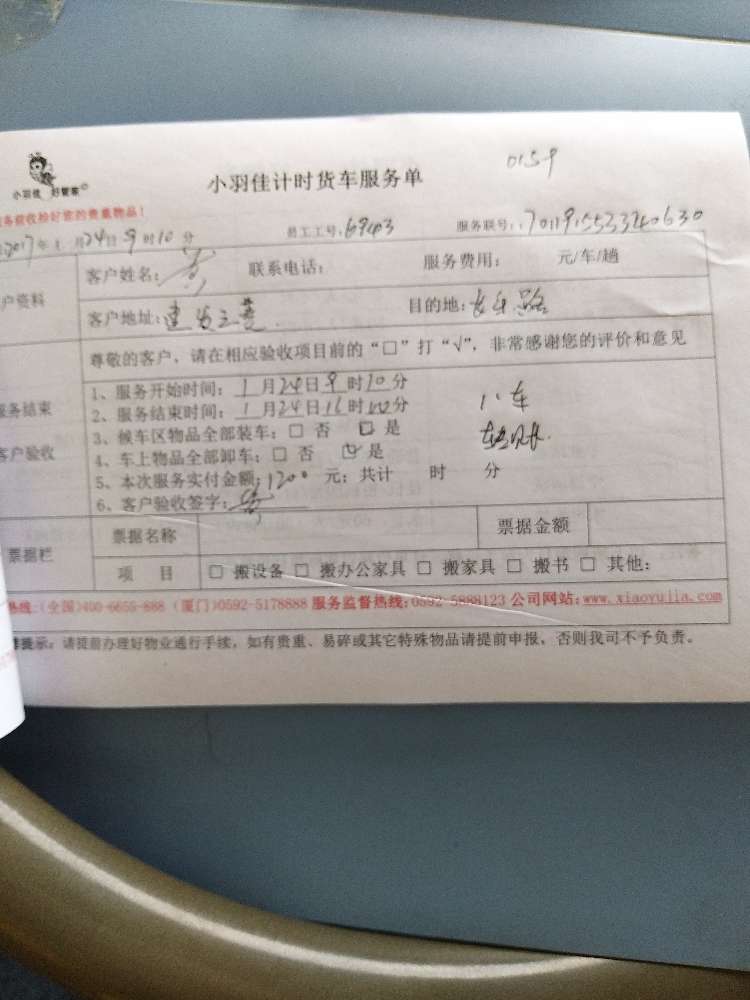 小羽佳 好管家
小羽佳计时货车服务单
0159
务前收拾好您的贵重物品!
2017年1月24日9时10分 员工工号:69403 服务联号:
户资料 客户姓名:黄 联系电话: 服务费用: 元/车/趟
客户地址:建发 目的地:长乐路
尊敬的客户,请在相应验收项目前的“□”打“√”,非常感谢您的评价和意见
服务结束
客户验收
1、服务开始时间:1月24日9时10分
2、服务结束时间:1月24日时分
3、候车区物品全部装车:□ 否 ☑ 是
4、车上物品全部卸车:□ 否 ☑ 是
5、本次服务实付金额:1200元;共计 时 分
6、客户验收签字:黄
车
票据栏 票据名称 票据金额
项 目 □ 搬设备 □ 搬办公家具 □ 搬家具 □ 搬书 □ 其他:
热线:(全国)400-6655-888 (厦门)0592-5178888 服务监督热线:0592-5888123 公司网站:www.xiaoyujia.com
提示:请提前办理好物业通行手续,如有贵重、易碎或其它特殊物品请提前申报,否则我司不予负责。